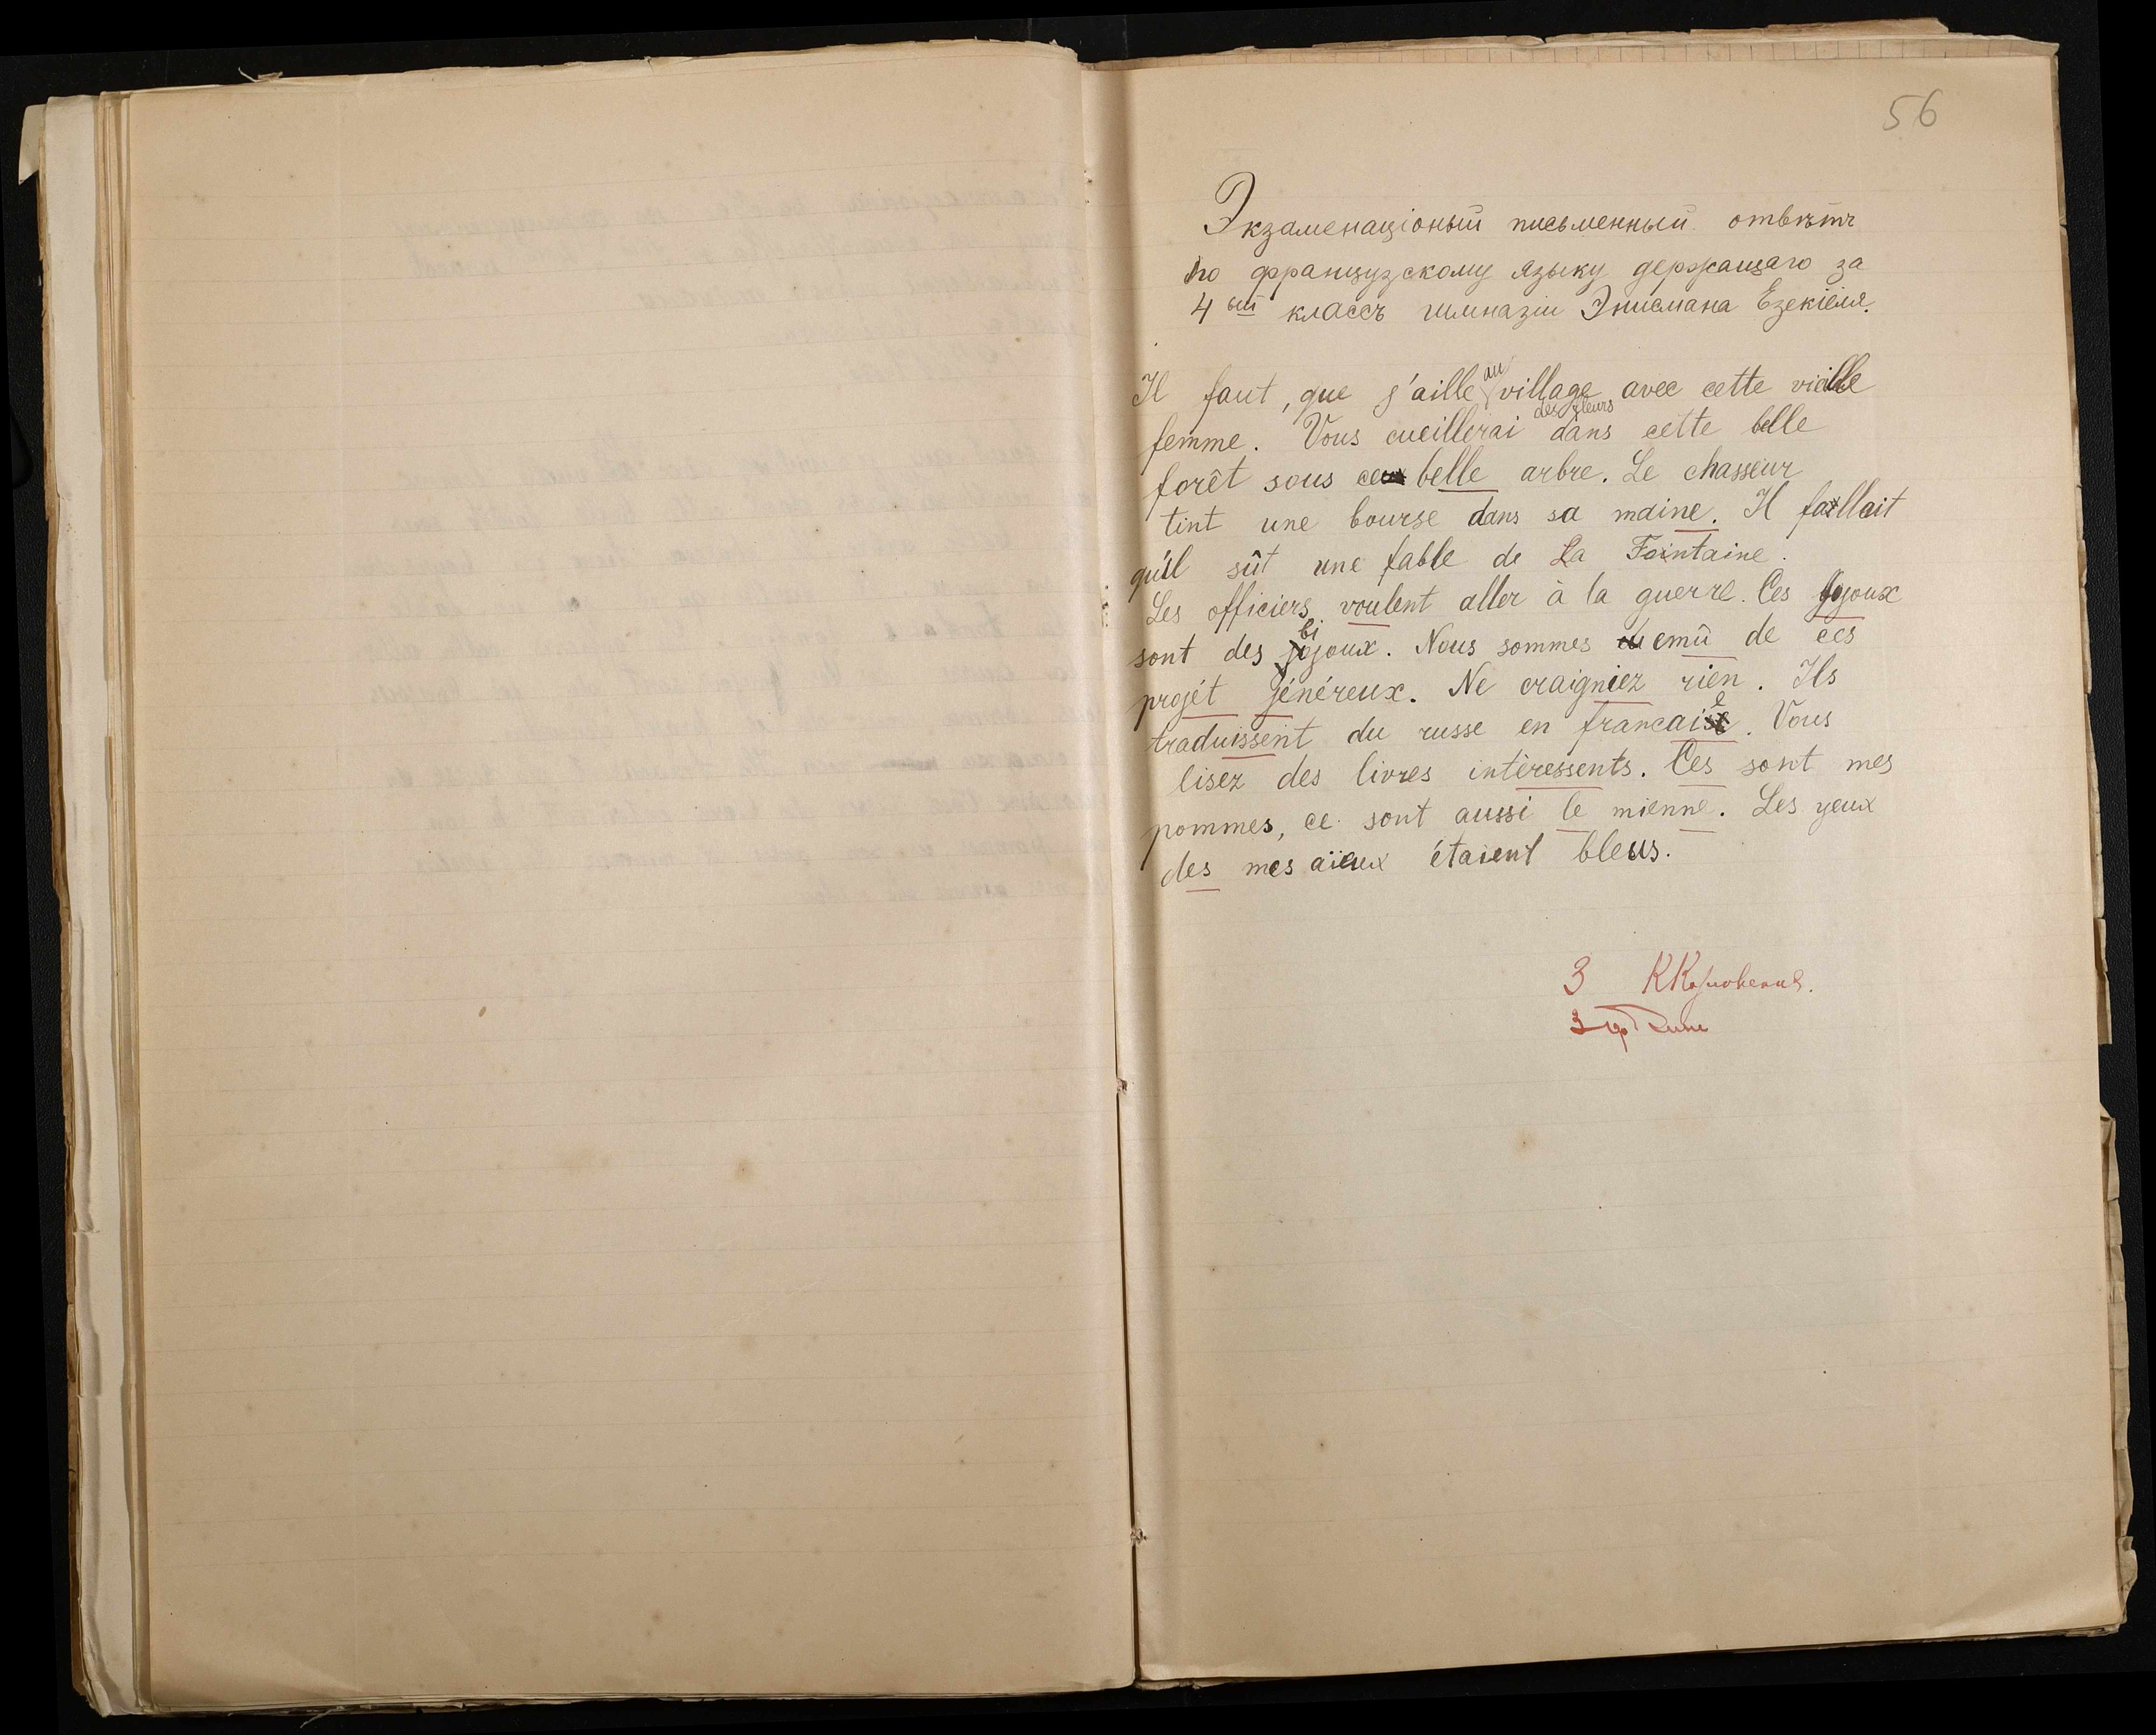 56
Экзаменаціоный письменный отвѣтъ
по французскому языку держащаго за
4ый классъ гимназіи Энисмана Езекіеля.
Il faut, que j'aille au village avec cette vieille
femme. Vous cueillerai des fleurs dans cette belle
forêt sous ce belle arbre. Le chasseur
tint une bourse dans sa maine. Il fallait
qu'il sût une fable de La Fontaine.
Les officiers voulent aller à la guerre. Ces jojoux
sont des bijoux. Nous sommes emû de ces
projét jénéreux. Ne craigniez rien. Ils
traduissent du russe en francaise. Vous
lisez des livres intèressents. Ces sont mes
pommes, ce sont aussi le mienne. Les yeux
des mes aïeux étaient bleus.
3 К
3